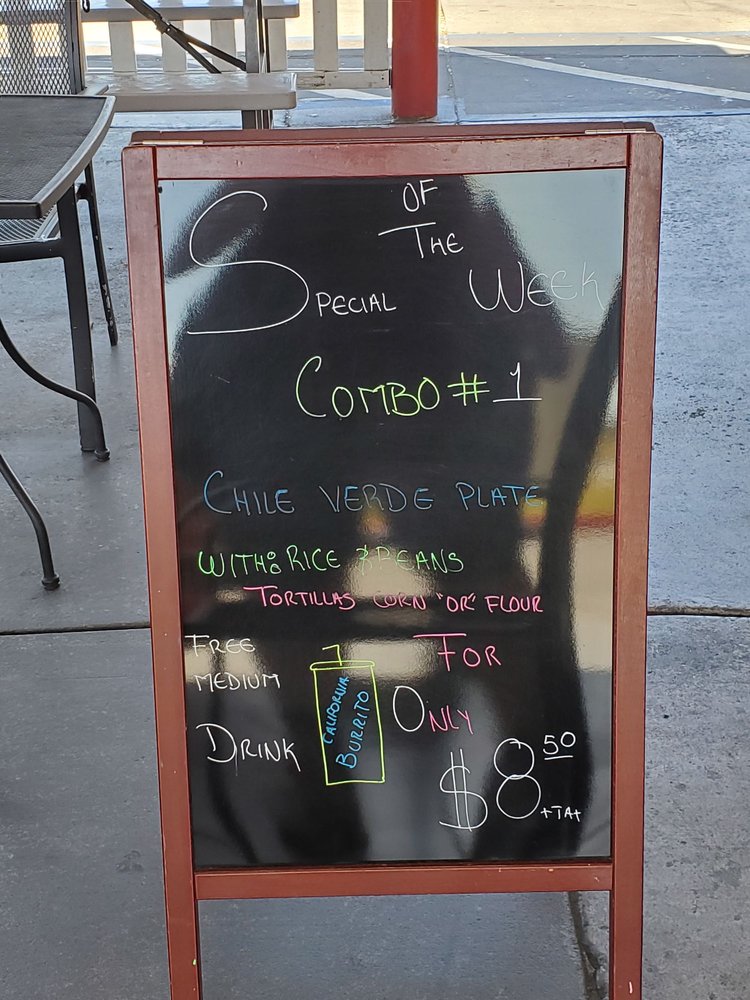 Special OF THE Week
COMBO # 1
CHILE VERDE PLATE
WITH: RICE & BEANS
TORTILLAS CORN "OR" FLOUR
FREE
MEDIUM
DRINK
CALIFORNIA
BURRITO
FOR
ONLY
$8.50
+TAX